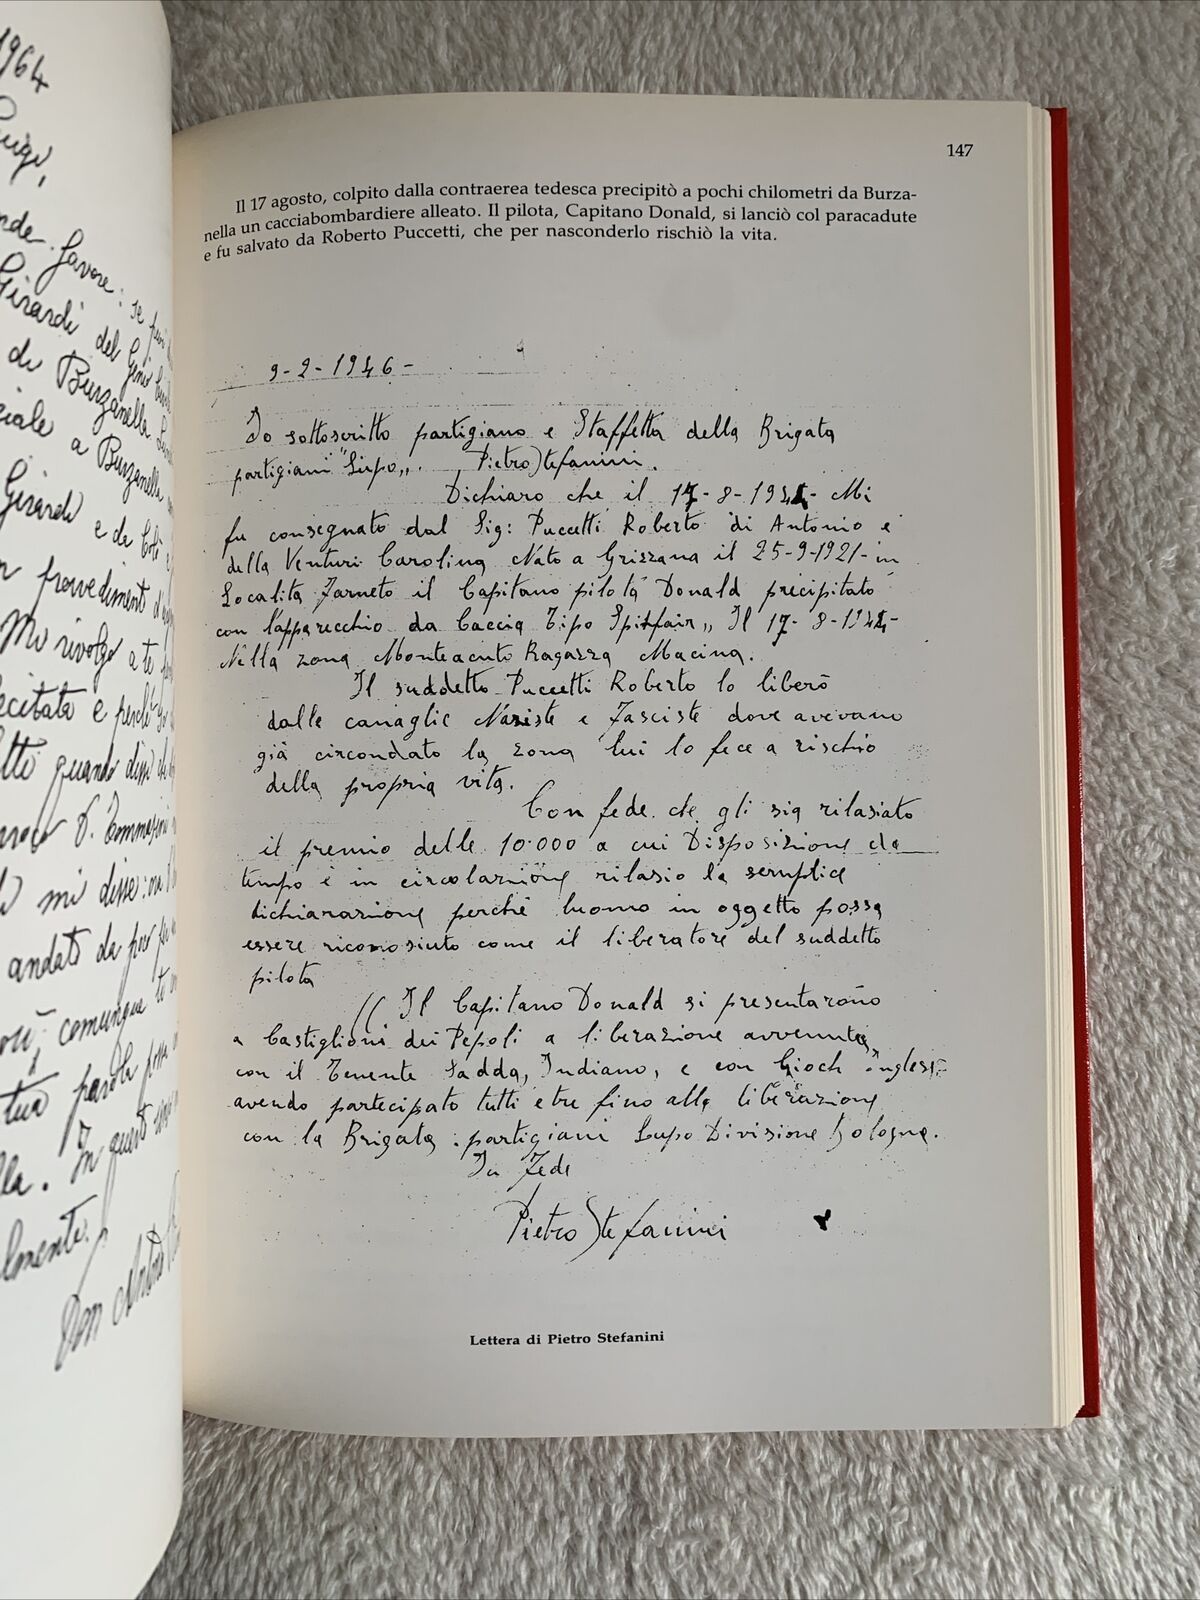 1964
Luigi,
favore: se
Girardi del Genio
di Burzanella
a Burzanella
Girardi e da
provvedimenti
Mi rivolgo a te
e perché
quando dissi
mi disse:
andato da
comunque te
tua parola possa
In quest
Don
147
Il 17 agosto, colpito dalla contraerea tedesca precipitò a pochi chilometri da Burza-
nella un cacciabombardiere alleato. Il pilota, Capitano Donald, si lanciò col paracadute
e fu salvato da Roberto Puccetti, che per nasconderlo rischiò la vita.
9-2-1946-
Io sottoscritto partigiano e Staffetta della Brigata
partigiani "Lupo„. Pietro Stefanini.
Dichiaro che il 17-8-1944- Mi
fu consegnato dal Sig: Puccetti Roberto di Antonio e
della Venturi Carolina Nato a Grizzana il 25-9-1921- in
Localita Farneto il Capitano pilota Donald precipitato
con l'apparecchio da Caccia Tipo Spitfair„ Il 17-8-1944-
Nella zona Monteacuto Ragazza Macina.
Il suddetto Puccetti Roberto lo liberò
dalle canaglie Naziste e Fasciste dove avevano
già circondato la zona lui lo fece a rischio
della propria vita.
Con fede che gli sia rilasiato
il premio delle 10.000 a cui Disposizione da
tempo è in circolarzione rilasio la semplice
dichiarazione perché luomo in oggetto possa
essere riconosiuto come il liberatore del suddetto
pilota
Il Capitano Donald si presentarono
a Castiglioni dei Pepoli a liberazione avvenuta
con il Tenente Sadda, Indiano, e con Gioch inglesi
avendo partecipato tutti e tre fino alla liberazione
con la Brigata partigiani Lupo Divisione bologna.
In Fede
Pietro Stefanini
Lettera di Pietro Stefanini